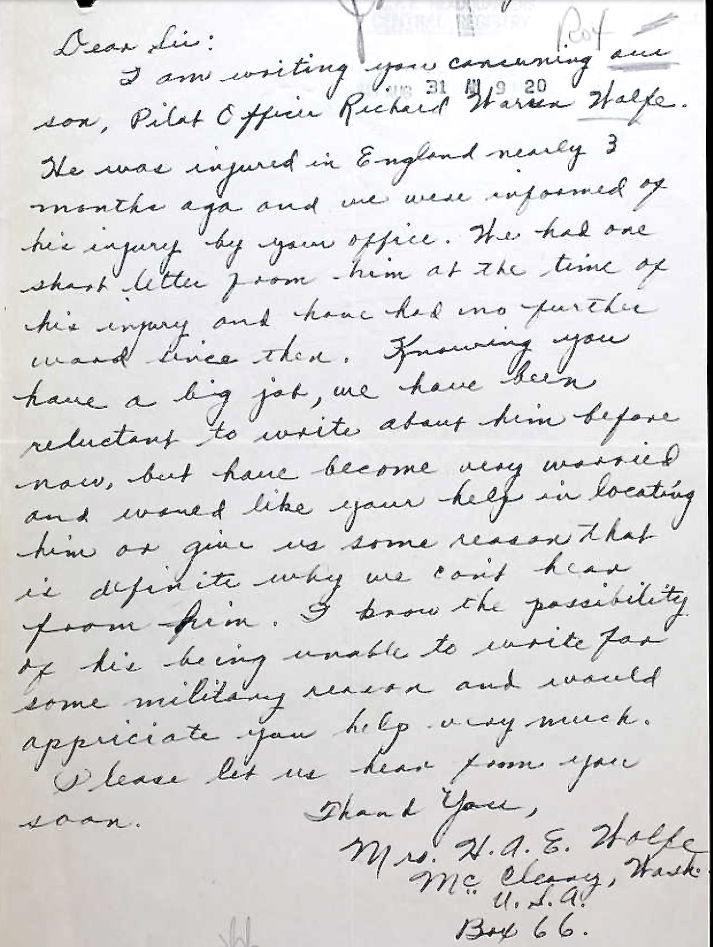 CENTRAL REGISTRY
Dear Sir:
I am writing you concerning our
31 9 20
son, Pilot Officer Richard Warren Wolfe.
He was injured in England nearly 3
months ago and we were informed of
his injury by your office. We had one
short letter from him at the time of
his injury and have had no further
word since then. Knowing you
have a big job, we have been
reluctant to write about him before
now, but have become very worried
and would like your help in locating
him or give us some reason that
is definite why we can't hear
from him. I know the possibility
of his being unable to write for
some military reason and would
appriciate you help very much.
Please let us hear from you
soon.
Thand You,
Mrs. H. A. E. Wolfe
Mc Cleary, Wash.
U. S. A.
Box 66.